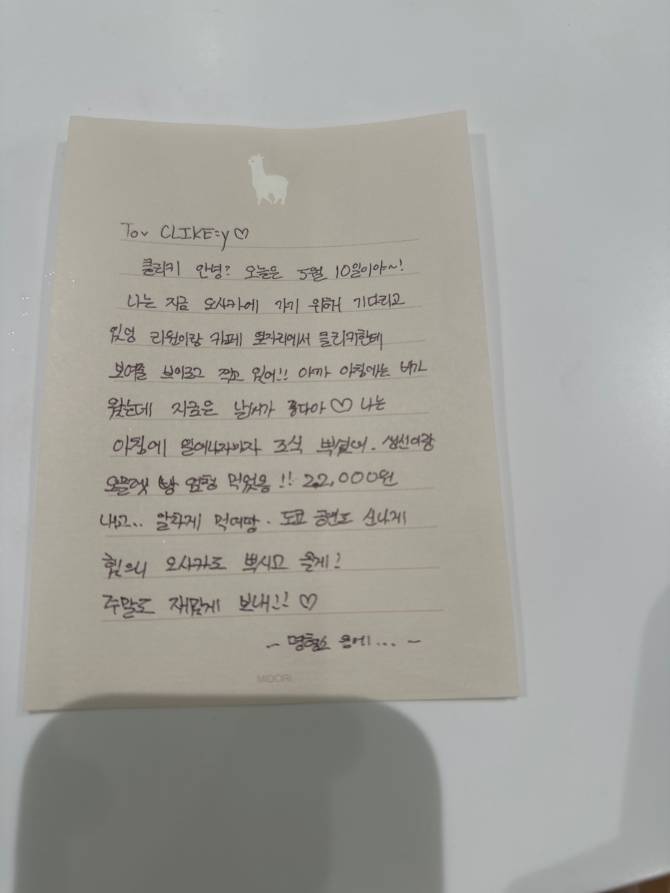 To. CLIKE:y ♡
클리키 안녕? 오늘은 5월 10일이야~!
나는 지금 오사카에 가기 위해 기다리고
있엉 리원이랑 카페 옆자리에서 클리키한테
보여줄 브이로그 찍고 있어!! 아까 아침에는 비가
왔는데 지금은 날씨가 좋다아 ♡ 나는
아침에 일어나자마자 조식 뿌셨어. 생선이랑
오믈렛 빵 엄청 먹었음 !! 22,000원
내고.. 알차게 먹어땅. 도쿄 공연도 신나게
했으니 오사카도 뿌시고 올게!
주말도 재밌게 보내!! ♡
MIDORI